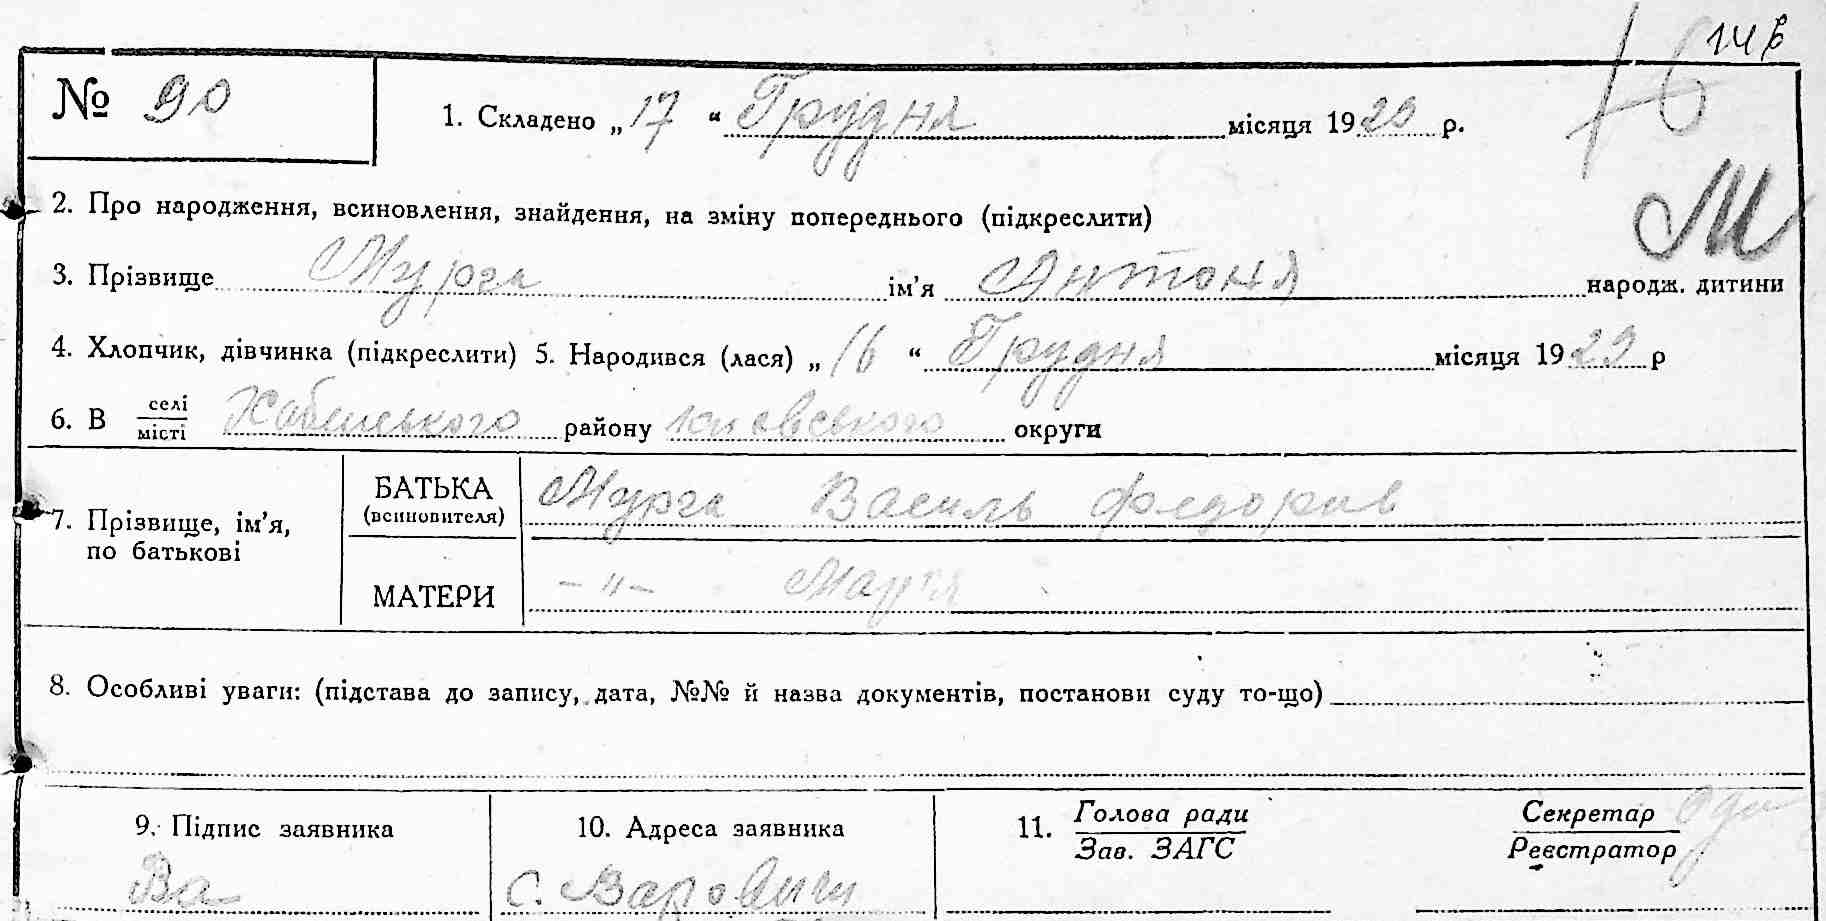 14 б
16
№ 90
1. Складено „ 17 “ Грудня місяця 1929 р.
2. Про народження, всиновлення, знайдення, на зміну попереднього (підкреслити)
М
3. Прізвище Мурга ім’я Антоня народж. дитини
4. Хлопчик, дівчинка (підкреслити) 5. Народився (лася) „ 16 “ Грудня місяця 1929 р
6. В селі місті Хабенського району Киівського округи
7. Прізвище, ім’я, по батькові
БАТЬКА (всиновителя) Мурга Василь Федорив
МАТЕРИ – „ – Марія
8. Особливі уваги: (підстава до запису, дата, №№ й назва документів, постанови суду то-що)
9. Підпис заявника
10. Адреса заявника
11. Голова ради Зав. ЗАГС
Секретар Реєстратор
Ва
с. Варовичи